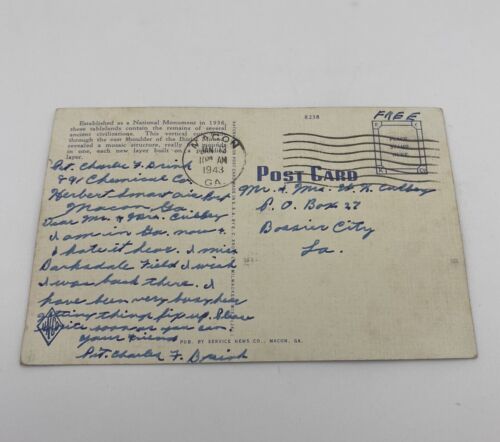 Established as a National Monument in 1936,
these tablelands contain the remains of several
ancient civilizations. This vertical cut
through the east shoulder of the
revealed a mosaic structure, really mounds
in one, each new layer built on a
layer.
Pvt. Charles F.
Chemical Co.
Herbert Smart air
Macon Ga
Dear Mr. & Mrs.
I am in Ga. now &
I hate it here. I miss
Barksdale Field I wish
I was back there. I
have been very busy here
getting things fix up. Please
write soon as you can
your friend
Pvt. Charles F.
8238
FREE
PLACE
STAMP
HERE
MACON
JAN 13
11 AM
1943
GA.
POST CARD
Mr. & Mrs.
P. O. Box 27
Bossier City
La.
PUB. BY SERVICE NEWS CO., MACON, GA.